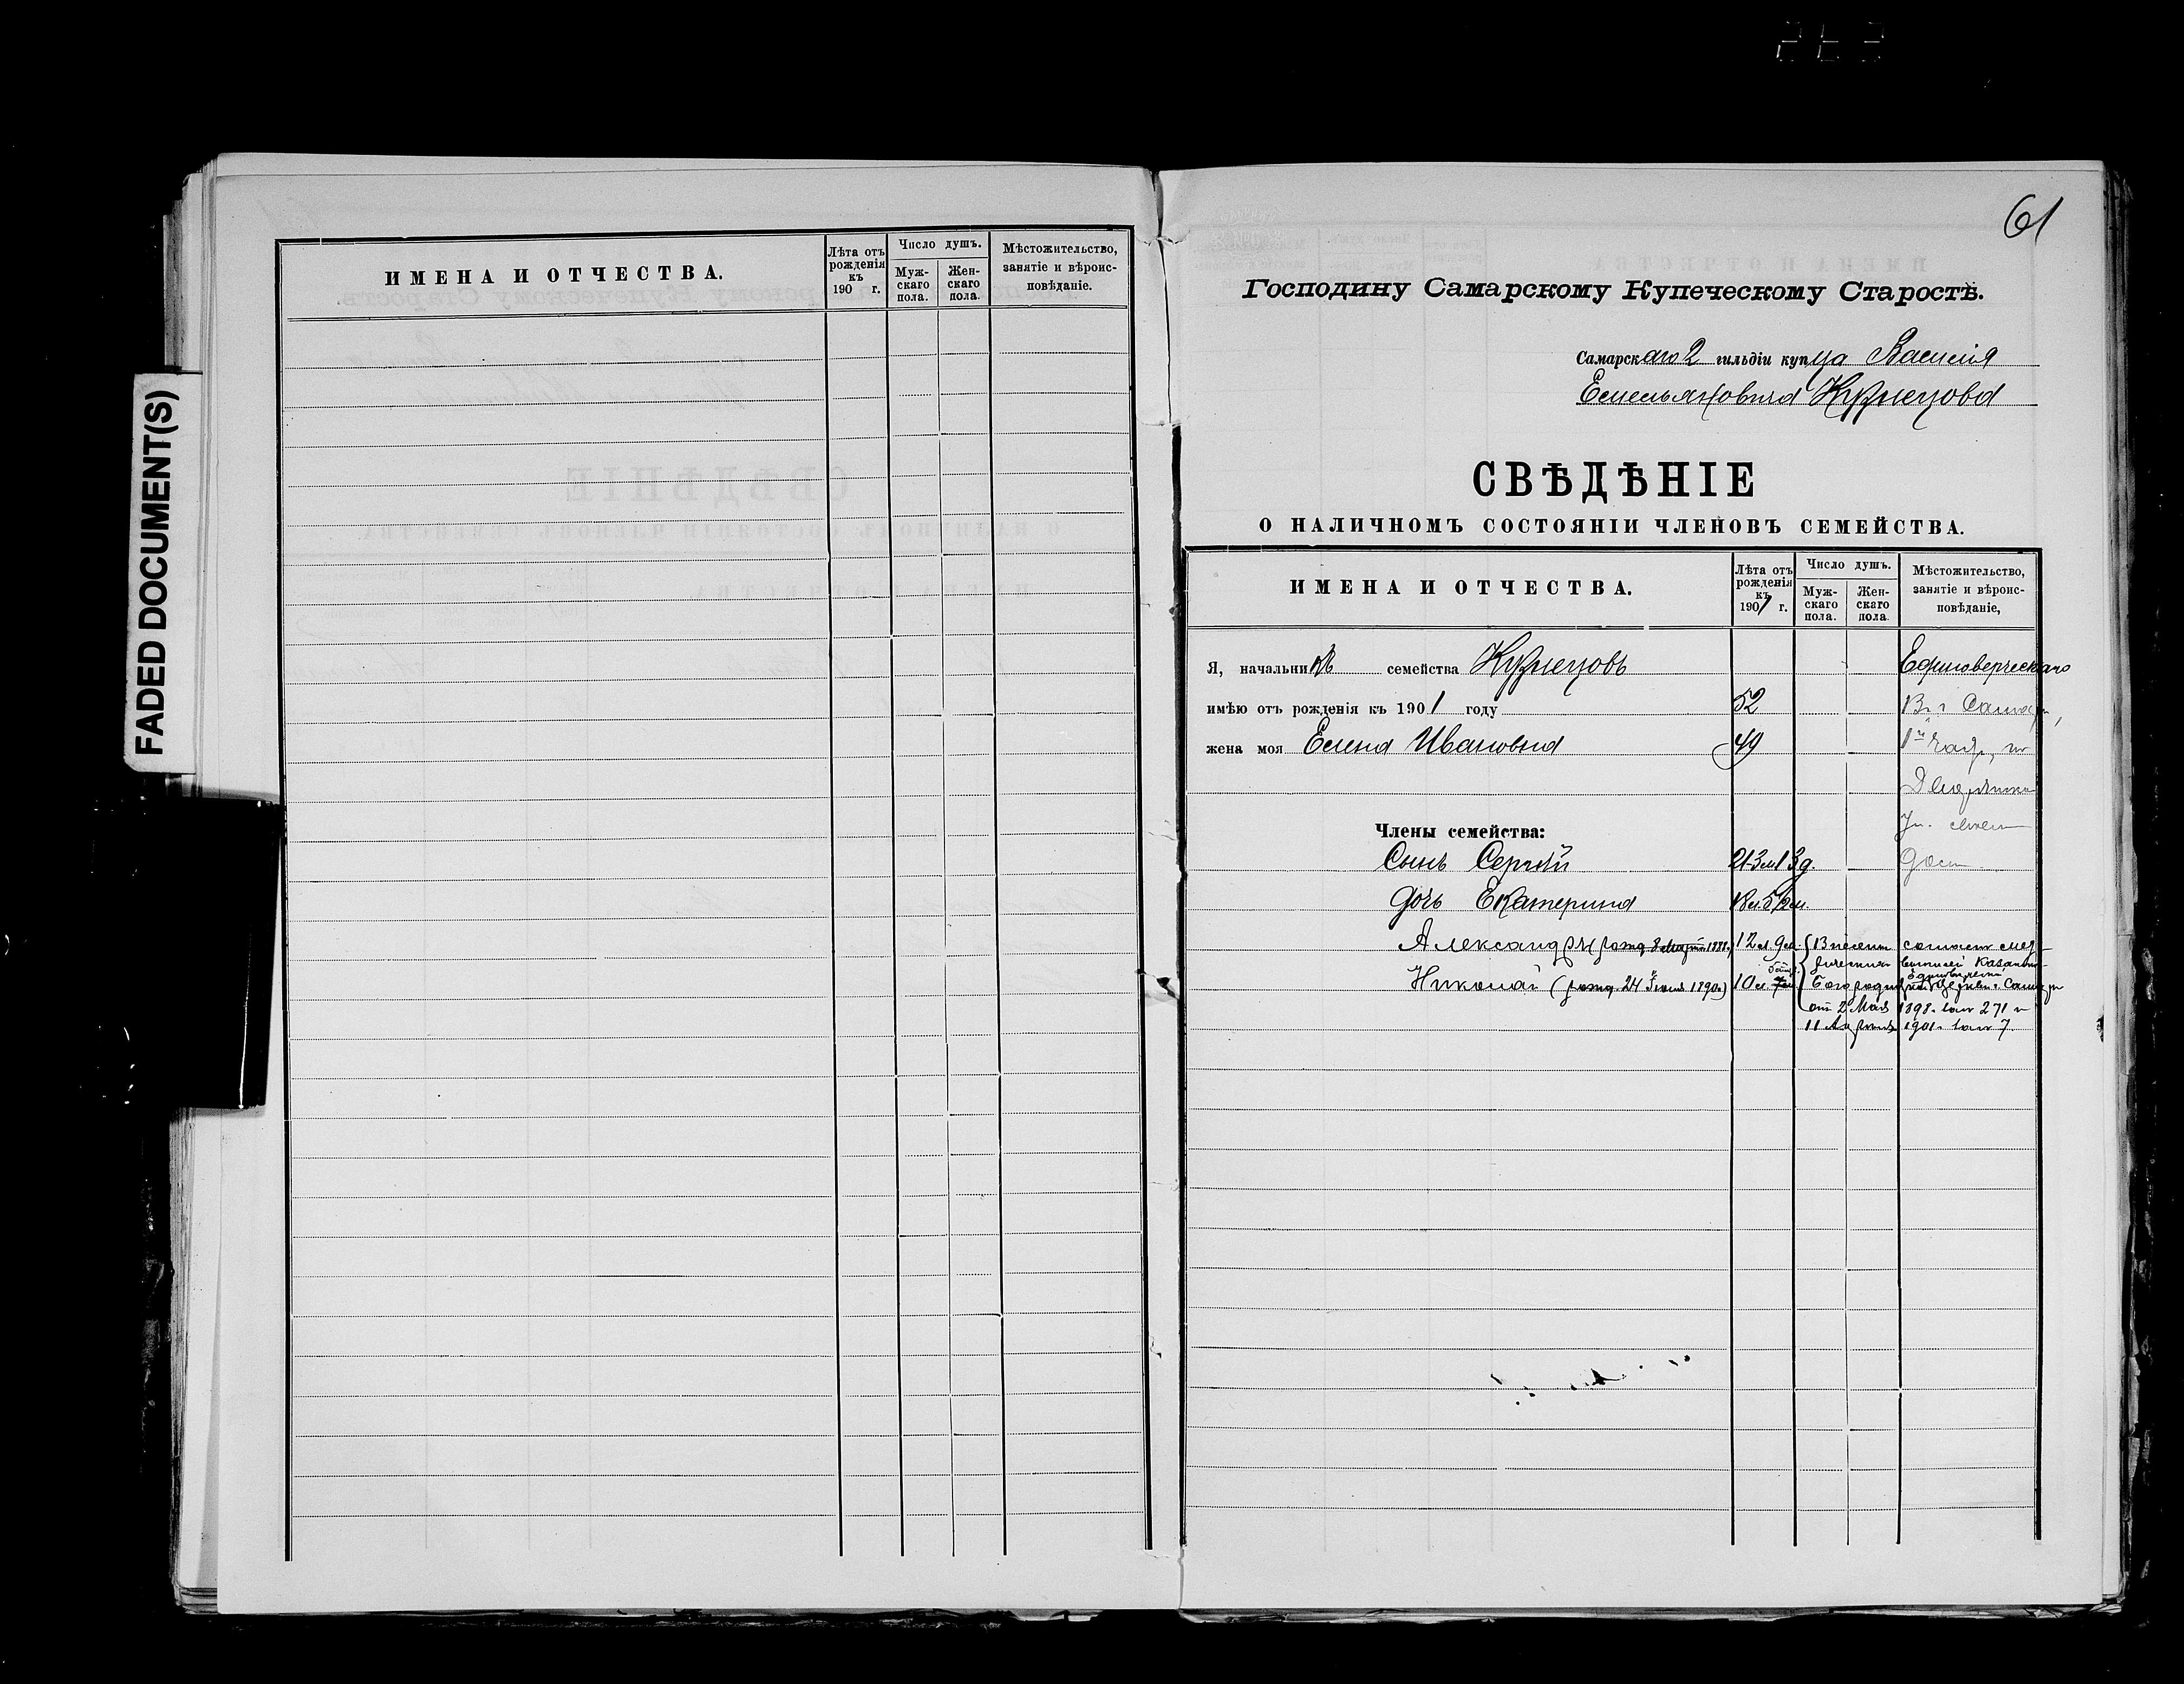 FADED DOCUMENT(S)
ИМЕНА И ОТЧЕСТВА.
Лѣта отъ рожденія къ 190 г.
Число душъ.
Мужскаго пола.
Женскаго пола.
Мѣстожительство, занятіе и вѣроисповѣданіе.
61
Господину Самарскому Купеческому Старостѣ.
Самарскаго 2 гильдіи купца Василія
Емельяновича Кузнецова
СВѢДѢНІЕ
О НАЛИЧНОМЪ СОСТОЯНІИ ЧЛЕНОВЪ СЕМЕЙСТВА.
ИМЕНА И ОТЧЕСТВА.
Лѣта отъ рожденія къ 1901 г.
Число душъ.
Мужскаго пола.
Женскаго пола.
Мѣстожительство, занятіе и вѣроисповѣданіе,
Я, начальникъ семейства Кузнецовъ Единоверческаго
имѣю отъ рожденія къ 1901 году 52 В г Самарѣ,
жена моя Елена Ивановна 49 1й части, по
Дворянской
Ул. своем
Члены семейства:
Сынъ Сергѣй 21 3м 13д. доме
дочь Екатерина
Александръ (рожд. 8 1888г) 12л 9м. Внесены согласно
Николай (рожд. 24 Іюня 1890г) 10л. Казанско-
Богородицкой Единоверческой Церкви г. Самары
от 2 Мая 1898г. за № 271 и
11 Апреля 1901г. за № 7